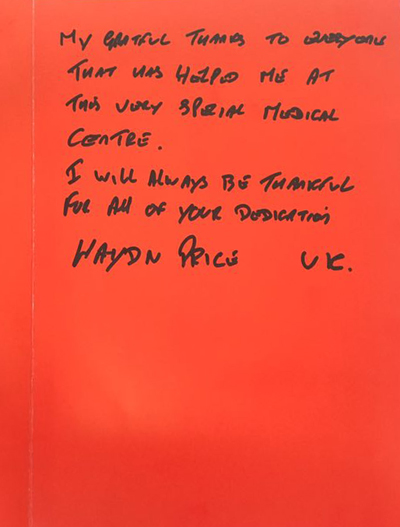 My GRATFUL THANKS TO EVERYONE
THAT HAS HELPED ME AT
THIS VERY SPECIAL MEDICAL
CENTRE.
I WILL ALWAYS BE THANKFUL
FOR ALL OF YOUR DEDICATION
HAYDN PRICE UK.